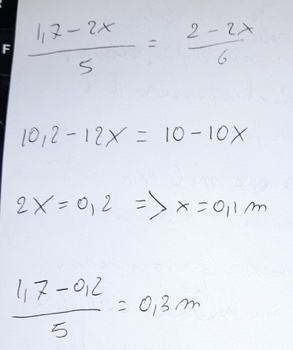 F
(1,7-2x)/5 = (2-2x)/6
10,2-12x = 10-10x
2x=0,2 => x=0,1m
(1,7-0,2)/5 = 0,3m